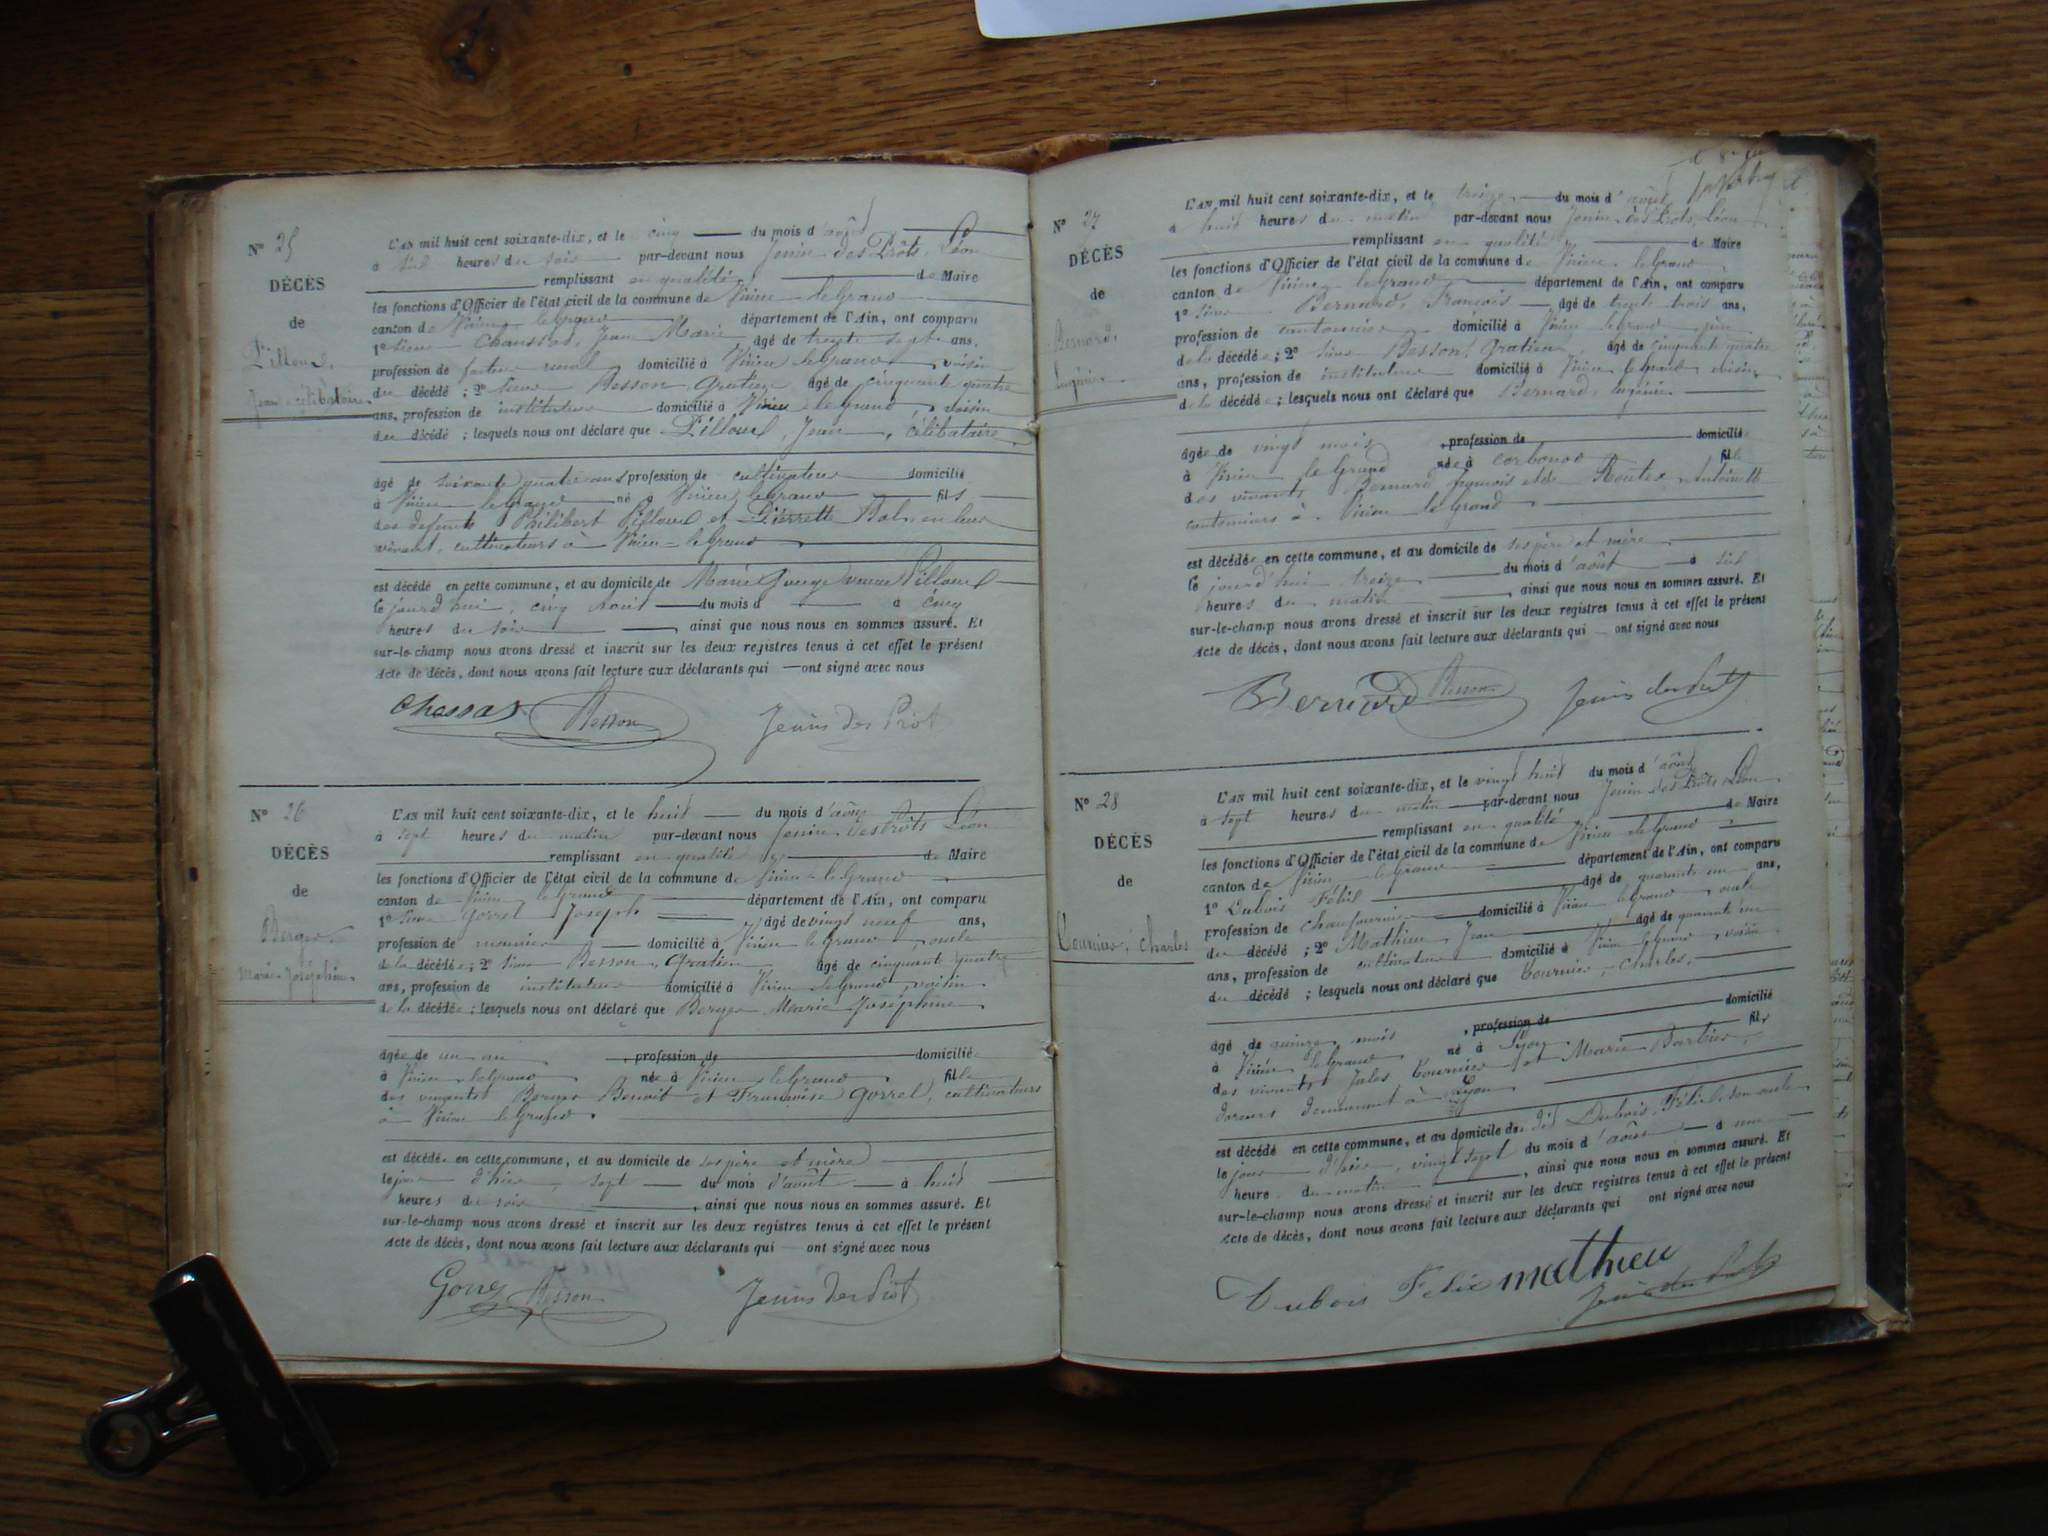 N° 25
DÉCÈS
de
Pilloud,
Jean célibataire
L'AN mil huit cent soixante-dix, et le cinq du mois d'août
à six heures du soir par-devant nous Jenin des Prôts, Léon
remplissant en qualité de Maire
les fonctions d'Officier de l'état civil de la commune de Virieu-le-Grand
canton de Virieu-le-Grand département de l'Ain, ont comparu
1° Sieur Jean Marie âgé de trente sept ans,
profession de facteur rural domicilié à Virieu-le-Grand, voisin
du décédé ; 2° Sieur Besson, Gratien âgé de cinquante quatre
ans, profession de instituteur domicilié à Virieu-le-Grand, voisin
du décédé ; lesquels nous ont déclaré que Pilloud, Jean, célibataire
âgé de soixante quatre ans profession de cultivateur domicilié
à Virieu-le-Grand né à Virieu-le-Grand fils
des défunts Philibert Pilloud et Pierrette en leur
vivant, cultivateurs à Virieu-le-Grand
est décédé en cette commune, et au domicile de Marie veuve Pilloud
le jourd'hui, cinq août du mois d à cinq
heures du soir, ainsi que nous nous en sommes assuré. Et
sur-le-champ nous avons dressé et inscrit sur les deux registres tenus à cet effet le présent
Acte de décès, dont nous avons fait lecture aux déclarants qui ont signé avec nous
Besson Jenin des Prôt
N° 26
DÉCÈS
de
Berger
Marie-Joséphine
L'AN mil huit cent soixante-dix, et le huit du mois d'août
à sept heures du matin par-devant nous Jenin des Prôts Léon
remplissant en qualité de Maire
les fonctions d'Officier de l'état civil de la commune de Virieu-le-Grand
canton de Virieu-le-Grand département de l'Ain, ont comparu
1° Sieur Gorrel Joseph âgé de vingt neuf ans,
profession de meunier domicilié à Virieu le Grand, oncle
de la décédée ; 2° Sieur Besson, Gratien âgé de cinquante quatre
ans, profession de instituteur domicilié à Virieu le Grand, voisin
de la décédée ; lesquels nous ont déclaré que Berger Marie Joséphine
âgée de un an profession de domiciliée
à Virieu-le-Grand née à Virieu-le-Grand fille
des vivants Berger Benoit et Françoise Gorrel, cultivateurs
à Virieu le Grand.
est décédée en cette commune, et au domicile de ses père et mère
le jour d'hier, sept du mois d'août à huit
heures du soir, ainsi que nous nous en sommes assuré. Et
sur-le-champ nous avons dressé et inscrit sur les deux registres tenus à cet effet le présent
Acte de décès, dont nous avons fait lecture aux déclarants qui ont signé avec nous
Besson Jenin des Prôt
N° 27
DÉCÈS
de
Bernard,
Eugénie
L'AN mil huit cent soixante-dix, et le treize du mois d'août
à huit heures du matin par-devant nous Jenin des Prôts, Léon
remplissant en qualité de Maire
les fonctions d'Officier de l'état civil de la commune de Virieu-le-Grand
canton de Virieu-le-Grand département de l'Ain, ont comparu
1° Sieur Bernard, François âgé de trente trois ans,
profession de cantonnier domicilié à Virieu-le-Grand père
de la décédée ; 2° Sieur Besson, Gratien âgé de cinquante quatre
ans, profession de instituteur domicilié à Virieu le Grand voisin
de la décédée ; lesquels nous ont déclaré que Bernard, Eugénie
âgée de vingt mois profession de domiciliée
à Virieu le Grand née à Corbonod fille
des vivants Bernard françois et de Antoinette
cantonniers à Virieu le Grand
est décédée en cette commune, et au domicile de ses père et mère
le jourd'hui treize du mois d'août à six
heures du matin, ainsi que nous nous en sommes assuré. Et
sur-le-champ nous avons dressé et inscrit sur les deux registres tenus à cet effet le présent
Acte de décès, dont nous avons fait lecture aux déclarants qui ont signé avec nous
Bernard Besson Jenin des Prôts
N° 28
DÉCÈS
de
Cournier, Charles
L'AN mil huit cent soixante-dix, et le vingt huit du mois d'août
à sept heures du matin par-devant nous Jenin des Prôts Léon
remplissant en qualité de Maire
les fonctions d'Officier de l'état civil de la commune de Virieu-le-Grand
canton de Virieu-le-Grand département de l'Ain, ont comparu
1° Dubois Félix âgé de quarante un ans,
profession de chaufournier domicilié à Virieu le Grand, oncle
du décédé ; 2° Mathieu, Jean âgé de quarante un
ans, profession de cultivateur domicilié à Virieu le Grand, voisin
du décédé ; lesquels nous ont déclaré que Cournier, Charles,
âgé de quinze mois, profession de domicilié
à Virieu le Grand né à Lyon fils
des vivants Jules Cournier et Marie Barbier,
demeurant à Lyon
est décédé en cette commune, et au domicile de dit Dubois Félix son oncle
le jour d'hier, vingt sept du mois d'août à une
heure du matin, ainsi que nous nous en sommes assuré. Et
sur-le-champ nous avons dressé et inscrit sur les deux registres tenus à cet effet le présent
Acte de décès, dont nous avons fait lecture aux déclarants qui ont signé avec nous
Dubois Felix mathieu
Jenin des Prôts